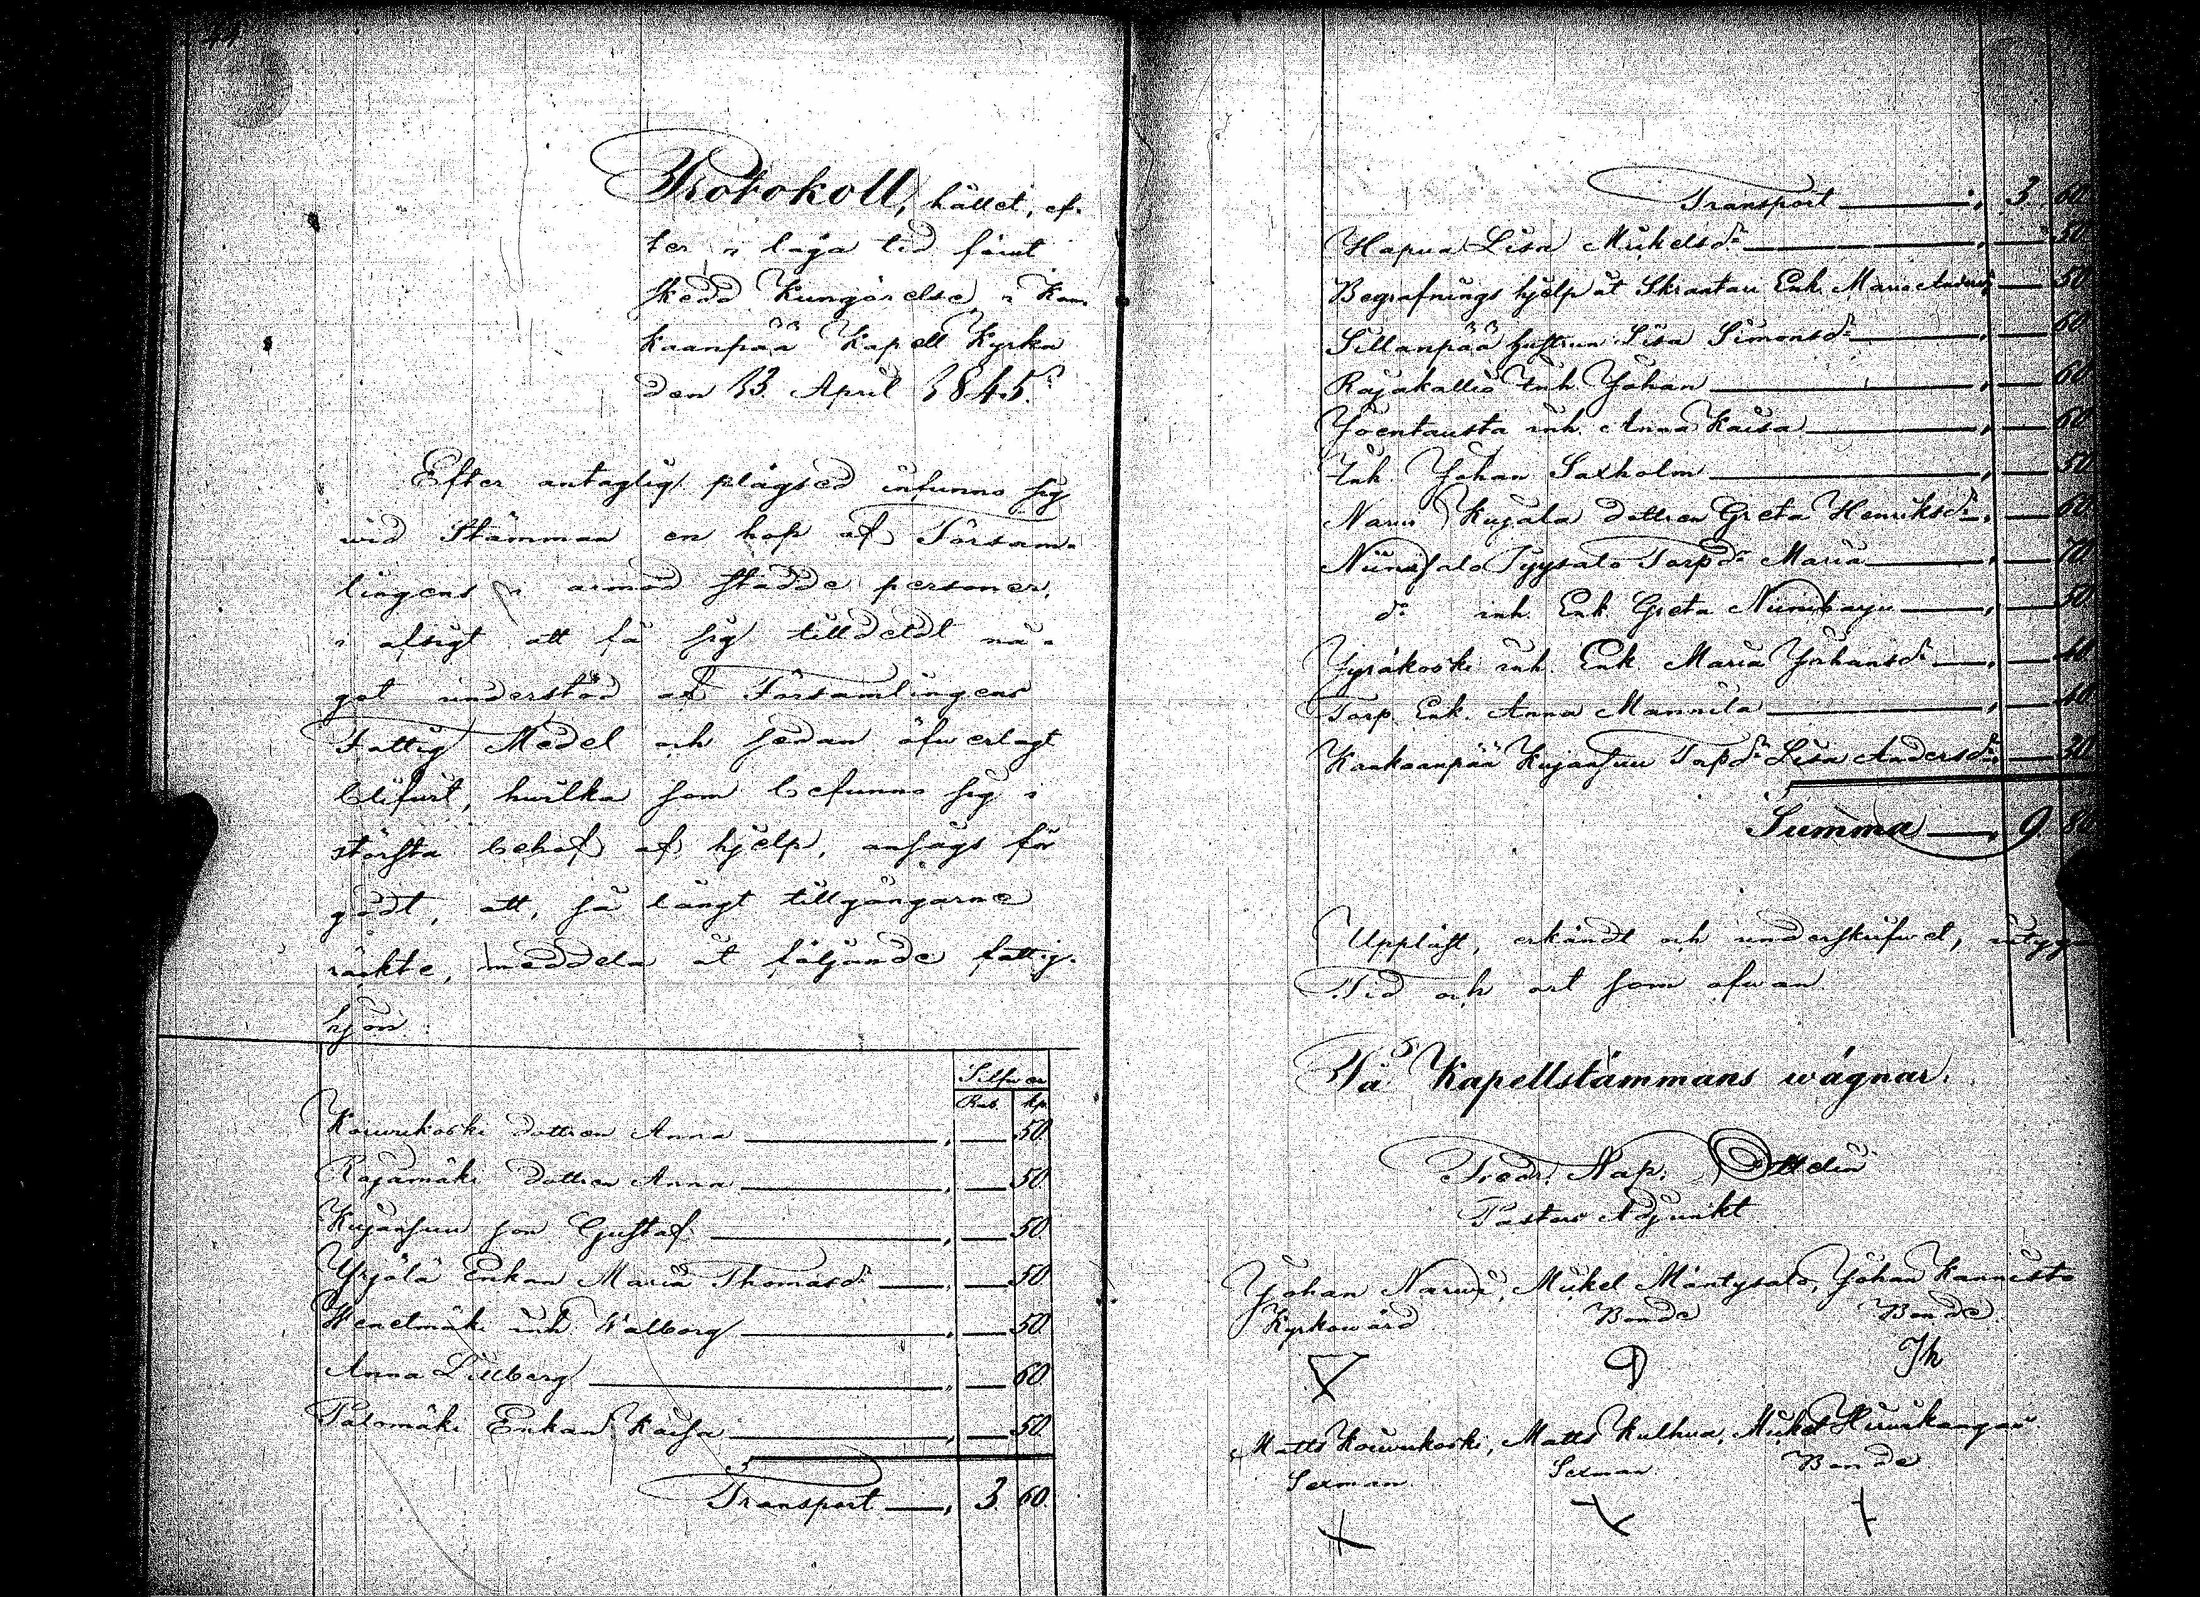 44
Protokoll, hållet, ef-
ter i laga tid förut
skedd Kungörelse, i Kan-
kaanpää Kapell Kyrka
den 13. April 1845.
Efter antaglig plägsed infunno sig
wid Stämman en hop af Försam-
lingens i armod stadde personer,
i afsigt att få sig tilldeldt nå-
got understöd af Församlingens
Fattig Medel och sedan öfwerlagt
blifwit, hwilka som befunno sig i
största behof af hjelp, ansågs för
godt, att, så långt tillgångarne
räckte, meddela åt följande fattig-
hjon:
Silfwer
Rub. kp.
Koiwukoski dottren Anna 50.
Rajamäki dottren Anna 50.
Kujansuu son Gustaf 50.
Yrjälä Enkan Maria Thomasdr 50.
Wenetmäki inh. Walborg 50.
Anna Lillberg 60.
Palomäki Enkan Kaisa 50.
Transport 3. 60.
Transport 3. 60.
Hapua Lisa Mickelsdr 50.
Begrafnings hjelp åt Skrantari Enk. Maria Andersdr 50.
Sillanpää hustrun Lisa Simonsdr 60.
Rajakallio Inh. Johan 60.
Joentausta inh. Anna Kaisa 60.
Inh. Johan Saxholm 50.
Narwi Kujala dottren Greta Henriksdr 60.
Niinisalo Syysalo Torpdr Maria 70.
dr inh. Enk. Greta Niiniharju 50.
Jyräkoski inh. Enk. Maria Johansdr 40.
Torp. Enk. Anna Mannila 40.
Kankaanpää Kujansuu Torpdr Lisa Andersdr 30.
Summa 9. 80.
Uppläst, erkändt och underskrifwet, intygar
Tid och ort som ofwan.
På Kapellstämmans wägnar.
Fredr. Nap. Ottelin
Pastors Adjunkt
Johan Narwi, Mickel Mäntysalo, Johan Kannisto
Kyrkowärd. Bonde Bonde.
Matts Koiwukoski, Matts Kulhua, Mickel Hirwikangas
Sexman. Sexman. Bonde